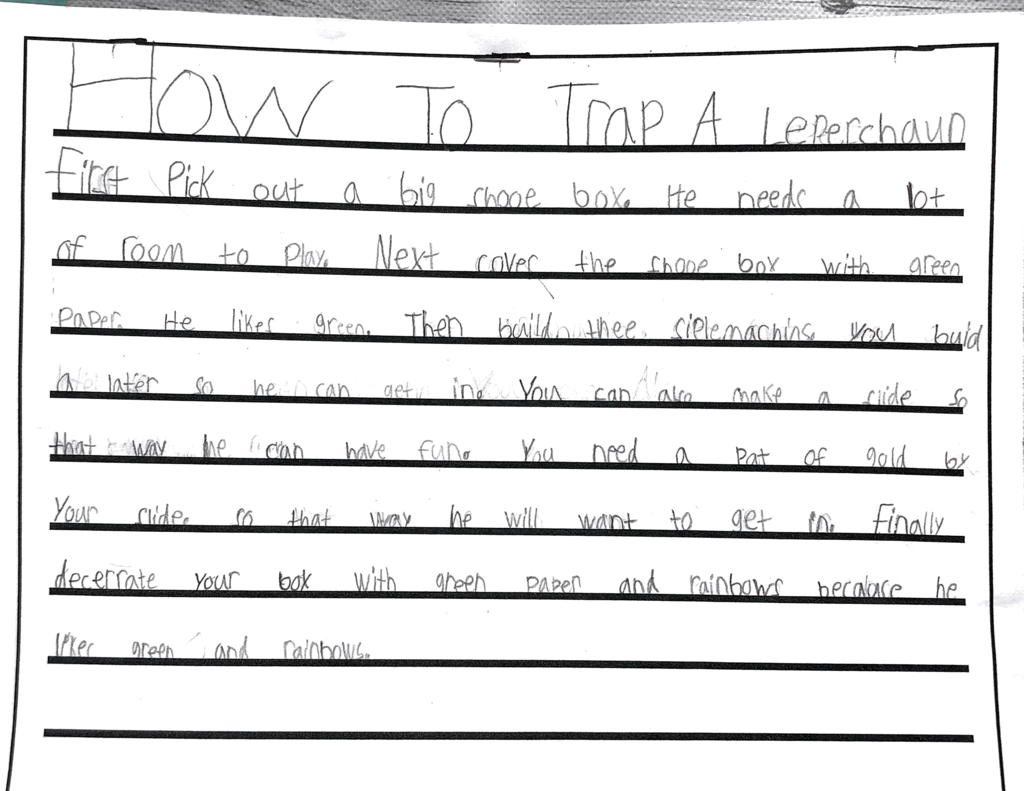 HOW TO TraP A LePerchaun
First Pick out a big shooe box. He needs a lot
of room to Play. Next cover the shooe box with green
PaPer. He likes green. Then build thee siplemachins. you buid
a later so he can get in. You can also make a slide so
that way he can have fun. You need a Pat of gold by
your slide. so that way he will want to get in. Finally
decerrate your box with green PaPer and rainbows becaluse he
likes green and rainbows.